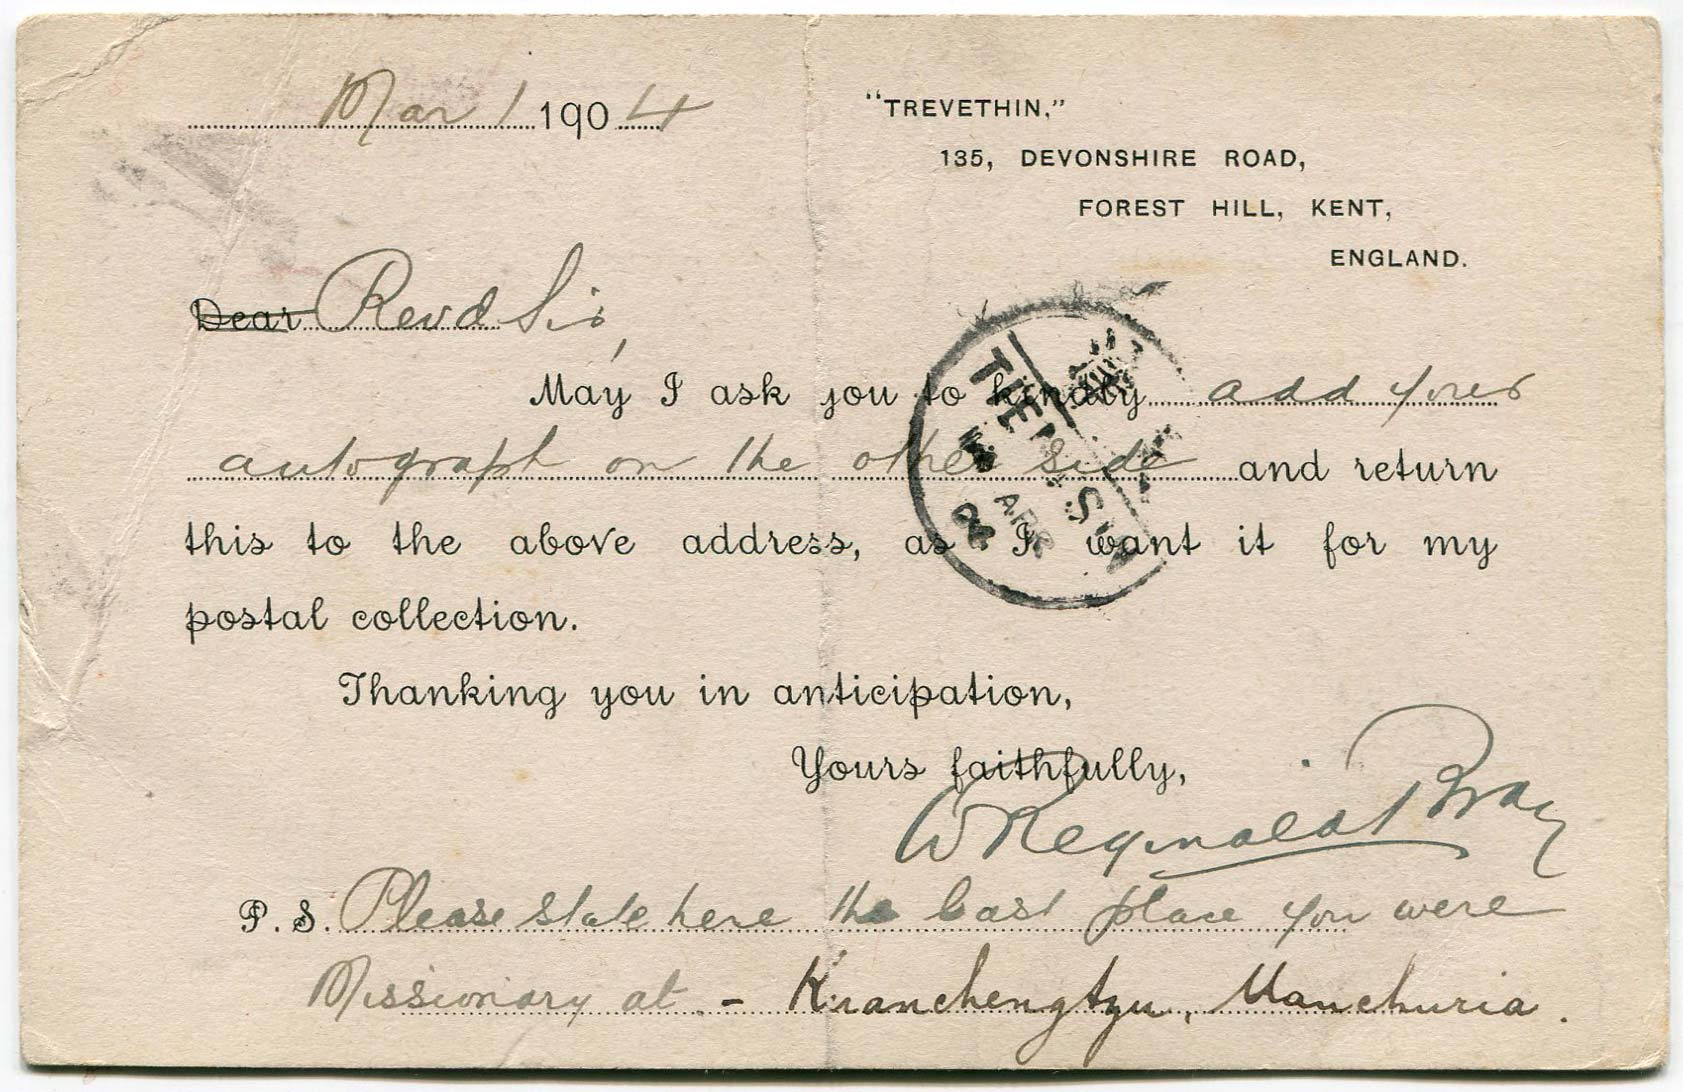 Mar 1 1904
"TREVETHIN,"
135, DEVONSHIRE ROAD,
FOREST HILL, KENT,
ENGLAND.
Dear Revd Sir,
May I ask you to kindly add your
autograph on the other side and return
this to the above address, as I want it for my
postal collection.
Thanking you in anticipation,
Yours faithfully,
W Reginald Bray
P. S. Please state here the last place you were
Missionary at. - Kuanchengtzu, Manchuria.
TIENTSIN
APR